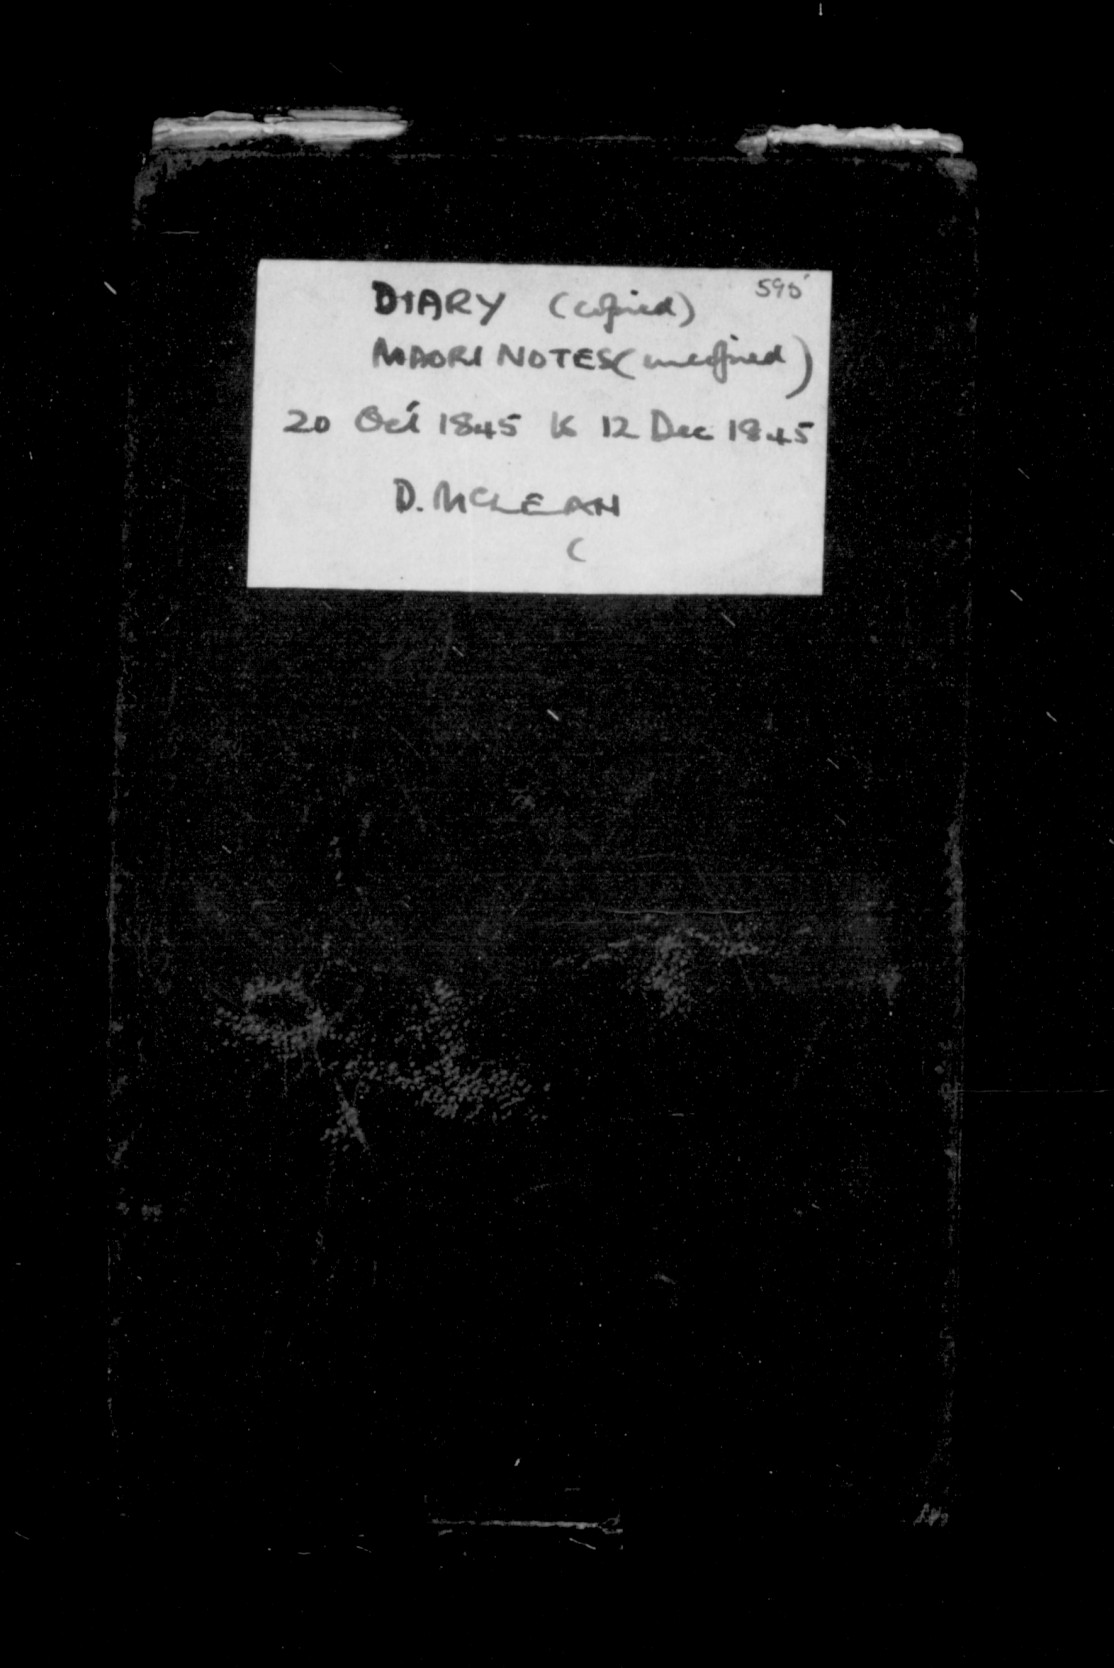 595
DIARY (copied)
MAORI NOTES (uncopied)
20 Oct 1845 to 12 Dec 1845
D. MCLEAN
(